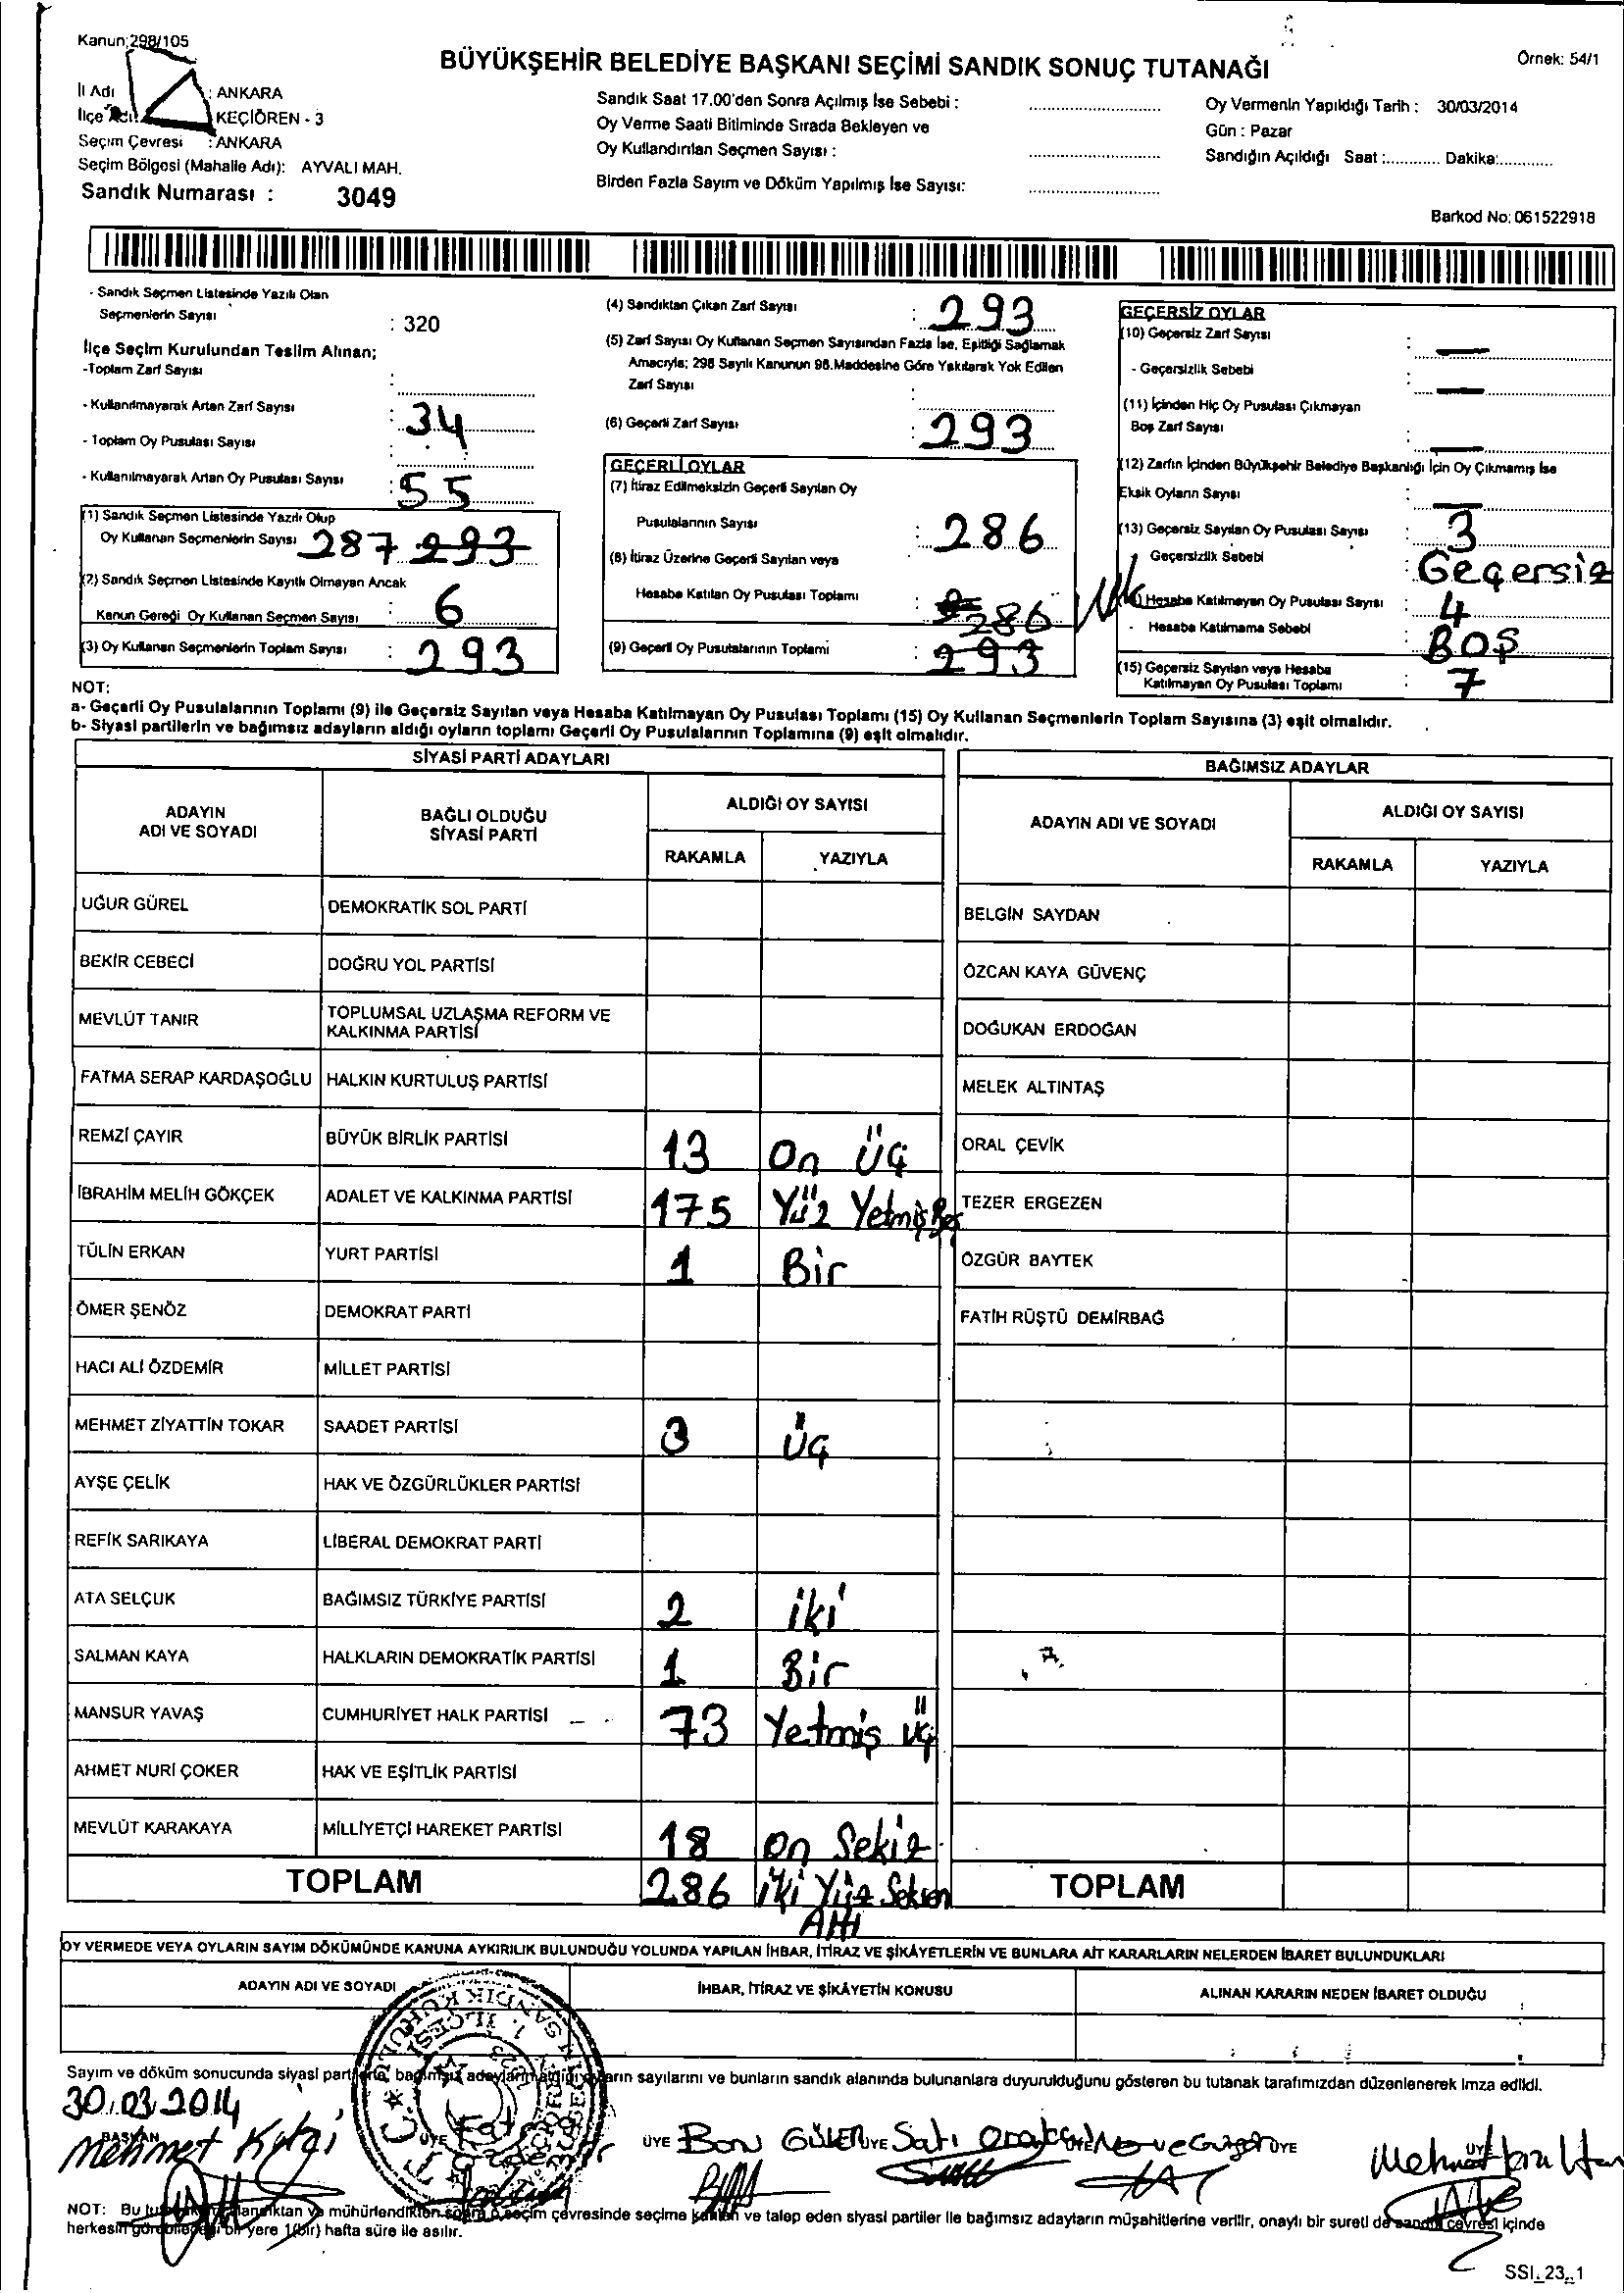 Kanun;298/105
BÜYÜKŞEHİR BELEDİYE BAŞKANI SEÇİMİ SANDIK SONUÇ TUTANAĞI
Örnek: 54/1
İl Adı : ANKARA
İlçe KEÇİÖREN - 3
Seçim Çevresi : ANKARA
Seçim Bölgesi (Mahalle Adı): AYVALI MAH.
Sandık Numarası : 3049
Sandık Saat 17.00'den Sonra Açılmış İse Sebebi :
Oy Verme Saati Bitiminde Sırada Bekleyen ve
Oy Kullandırılan Seçmen Sayısı :
Birden Fazla Sayım ve Döküm Yapılmış İse Sayısı:
Oy Vermenin Yapıldığı Tarih : 30/03/2014
Gün : Pazar
Sandığın Açıldığı Saat :............ Dakika:............
Barkod No: 061522918
- Sandık Seçmen Listesinde Yazılı Olan
Seçmenlerin Sayısı : 320
İlçe Seçim Kurulundan Teslim Alınan;
-Toplam Zarf Sayısı :
- Kullanılmayarak Artan Zarf Sayısı : 34
- Toplam Oy Pusulası Sayısı :
- Kullanılmayarak Artan Oy Pusulası Sayısı : 55
(1) Sandık Seçmen Listesinde Yazılı Olup
Oy Kullanan Seçmenlerin Sayısı : 287 293
(2) Sandık Seçmen Listesinde Kayıtlı Olmayan Ancak
Kanun Gereği Oy Kullanan Seçmen Sayısı : 6
(3) Oy Kullanan Seçmenlerin Toplam Sayısı : 293
(4) Sandıktan Çıkan Zarf Sayısı : 293
(5) Zarf Sayısı Oy Kullanan Seçmen Sayısından Fazla İse, Eşitliği Sağlamak
Amacıyla; 298 Sayılı Kanunun 98.Maddesine Göre Yakılarak Yok Edilen
Zarf Sayısı :
(6) Geçerli Zarf Sayısı : 293
GEÇERLİ OYLAR
(7) İtiraz Edilmeksizin Geçerli Sayılan Oy
Pusulalarının Sayısı : 286
(8) İtiraz Üzerine Geçerli Sayılan veya
Hesaba Katılan Oy Pusulası Toplamı : 286
(9) Geçerli Oy Pusulalarının Toplamı : 293
GEÇERSİZ OYLAR
(10) Geçersiz Zarf Sayısı : —
- Geçersizlik Sebebi : —
(11) İçinden Hiç Oy Pusulası Çıkmayan
Boş Zarf Sayısı : —
(12) Zarfın İçinden Büyükşehir Belediye Başkanlığı İçin Oy Çıkmamış İse
Eksik Oyların Sayısı : —
(13) Geçersiz Sayılan Oy Pusulası Sayısı : 3
Geçersizlik Sebebi : Geçersiz
Hesaba Katılmayan Oy Pusulası Sayısı : 4
- Hesaba Katılmama Sebebi : BOŞ
(15) Geçersiz Sayılan veya Hesaba
Katılmayan Oy Pusulası Toplamı : 7
NOT:
a- Geçerli Oy Pusulalarının Toplamı (9) ile Geçersiz Sayılan veya Hesaba Katılmayan Oy Pusulası Toplamı (15) Oy Kullanan Seçmenlerin Toplam Sayısına (3) eşit olmalıdır.
b- Siyasi partilerin ve bağımsız adayların aldığı oyların toplamı Geçerli Oy Pusulalarının Toplamına (9) eşit olmalıdır.
SİYASİ PARTİ ADAYLARI
ADAYIN ADI VE SOYADI
BAĞLI OLDUĞU SİYASİ PARTİ
ALDIĞI OY SAYISI
RAKAMLA YAZIYLA
BAĞIMSIZ ADAYLAR
ADAYIN ADI VE SOYADI
ALDIĞI OY SAYISI
RAKAMLA YAZIYLA
UĞUR GÜREL DEMOKRATİK SOL PARTİ BELGİN SAYDAN
BEKİR CEBECİ DOĞRU YOL PARTİSİ ÖZCAN KAYA GÜVENÇ
MEVLÜT TANIR TOPLUMSAL UZLAŞMA REFORM VE KALKINMA PARTİSİ DOĞUKAN ERDOĞAN
FATMA SERAP KARDAŞOĞLU HALKIN KURTULUŞ PARTİSİ MELEK ALTINTAŞ
REMZİ ÇAYIR BÜYÜK BİRLİK PARTİSİ 13 On Üç ORAL ÇEVİK
İBRAHİM MELİH GÖKÇEK ADALET VE KALKINMA PARTİSİ 175 Yüz Yetmiş Beş TEZER ERGEZEN
TÜLİN ERKAN YURT PARTİSİ 1 Bir ÖZGÜR BAYTEK
ÖMER ŞENÖZ DEMOKRAT PARTİ FATİH RÜŞTÜ DEMİRBAĞ
HACI ALİ ÖZDEMİR MİLLET PARTİSİ
MEHMET ZİYATTİN TOKAR SAADET PARTİSİ 3 Üç
AYŞE ÇELİK HAK VE ÖZGÜRLÜKLER PARTİSİ
REFİK SARIKAYA LİBERAL DEMOKRAT PARTİ
ATA SELÇUK BAĞIMSIZ TÜRKİYE PARTİSİ 2 iki
SALMAN KAYA HALKLARIN DEMOKRATİK PARTİSİ 1 Bir
MANSUR YAVAŞ CUMHURİYET HALK PARTİSİ 73 Yetmiş üç
AHMET NURİ ÇOKER HAK VE EŞİTLİK PARTİSİ
MEVLÜT KARAKAYA MİLLİYETÇİ HAREKET PARTİSİ 18 On Sekiz
TOPLAM 286 iki Yüz Seksen Altı TOPLAM
OY VERMEDE VEYA OYLARIN SAYIM DÖKÜMÜNDE KANUNA AYKIRILIK BULUNDUĞU YOLUNDA YAPILAN İHBAR, İTİRAZ VE ŞİKÂYETLERİN VE BUNLARA AİT KARARLARIN NELERDEN İBARET BULUNDUKLARI
ADAYIN ADI VE SOYADI İHBAR, İTİRAZ VE ŞİKÂYETİN KONUSU ALINAN KARARIN NEDEN İBARET OLDUĞU
Sayım ve döküm sonucunda siyasi bağımsız sayılarını ve bunların sandık alanında bulunanlara duyurulduğunu gösteren bu tutanak tarafımızdan düzenlenerek imza edildi.
30.03.2014
BAŞKAN ÜYE ÜYE ÜYE ÜYE ÜYE ÜYE
Mehmet GÜLER Satı
NOT: Bu mühürlendikten sonra seçim çevresinde seçime katılan ve talep eden siyasi partiler ile bağımsız adayların müşahitlerine verilir, onaylı bir sureti de sandık çevresi içinde
herkesin görebileceği bir yere 1(bir) hafta süre ile asılır.
SSI_23_1